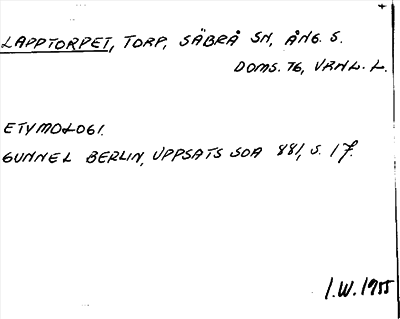 LAPPTORPET, TORP, SÄBRÅ SN, ÅNG. S.
DOMS. 76, VRNL. L.
ETYMOLOGI.
GUNNEL BERLIN, UPPSATS SOA 881, S. 17.
I.W. 1955